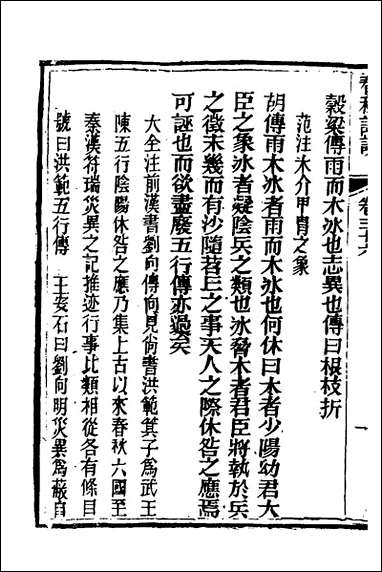 卷三十六
穀梁傳雨而木冰也志異也傳曰根枝折
范注木介甲冑之象
胡傳雨木冰者雨而木冰也何休曰木者少陽幼君大
臣之象冰者凝陰兵之類也冰脅木者君臣將執於兵
之徵未幾而有沙隨苕丘之事天人之際休咎之應焉
可誣也而欲盡廢五行傳亦過矣
大全注前漢書劉向傳向見尚書洪範箕子為武王
陳五行陰陽休咎之應乃集上古以來春秋六國至
秦漢符瑞災異之記推迹行事比類相從各有條目
號曰洪範五行傳 王安石曰劉向明災異為蔽自
一